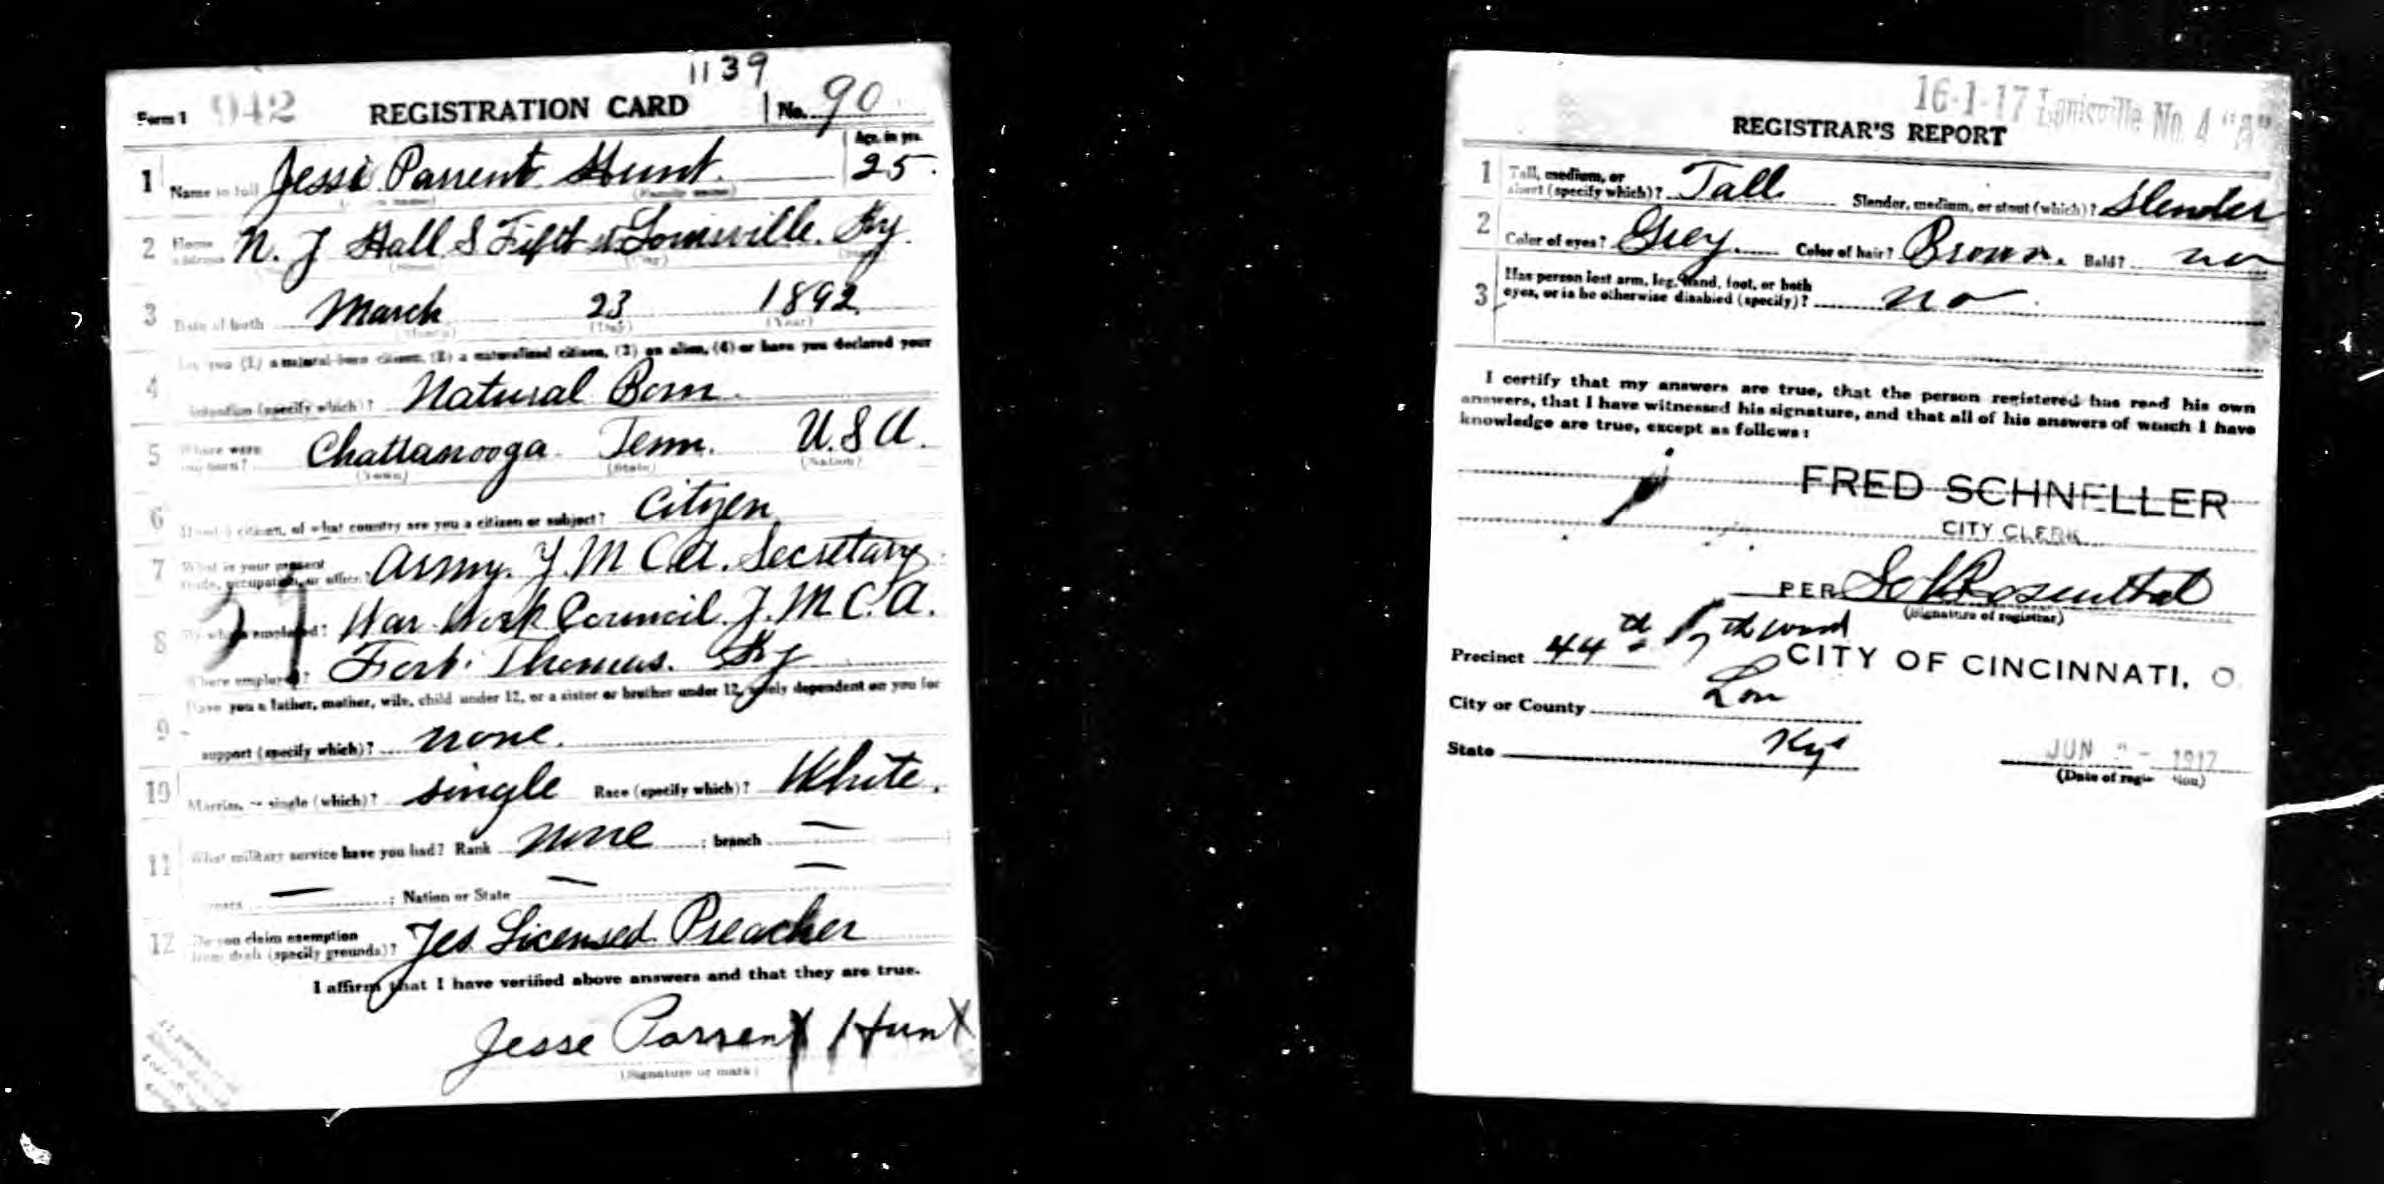 1139
Form 1 942 REGISTRATION CARD No. 90
Age, in yrs.
1 Name in full Jesse Parrent Hunt. 25.
(Family name)
2 Home address N. J Hall S Fifth st Louisville. Ky.
(City)
3 Date of birth March 23 1892
(Month) (Day) (Year)
Are you (1) a natural-born citizen, (2) a naturalized citizen, (3) an alien, (4) or have you declared your
4 intention (specify which)? Natural Born.
5 Where were you born? Chattanooga Tenn. U.S.A.
(Town) (State) (Nation)
6 If not a citizen, of what country are you a citizen or subject? Citizen
7 What is your present trade, occupation, or office? Army. Y.M.C.A. Secretary
8 By whom employed? War Work Council. Y.M.C.A.
Where employed? Fort Thomas. Ky
Have you a father, mother, wife, child under 12, or a sister or brother under 12, solely dependent on you for
9 support (specify which)? none.
10 Married or single (which)? single Race (specify which)? White.
11 What military service have you had? Rank none ; branch —
years — ; Nation or State — —
12 Do you claim exemption from draft (specify grounds)? Yes Licensed Preacher
I affirm that I have verified above answers and that they are true.
Jesse Parrent Hunt
(Signature or mark)
16-1-17 Louisville No. 4 "A"
REGISTRAR'S REPORT
1 Tall, medium, or short (specify which)? Tall Slender, medium, or stout (which)? Slender
2 Color of eyes? Grey Color of hair? Brown. Bald? no
3 Has person lost arm, leg, hand, foot, or both
eyes, or is he otherwise disabled (specify)? no
I certify that my answers are true, that the person registered has read his own
answers, that I have witnessed his signature, and that all of his answers of which I have
knowledge are true, except as follows:
FRED SCHNELLER
CITY CLERK
PER Sol Rosenthal
(Signature of registrar)
Precinct 44th ward
CITY OF CINCINNATI, O.
City or County Lou
State Ky
JUN 1917
(Date of registration)